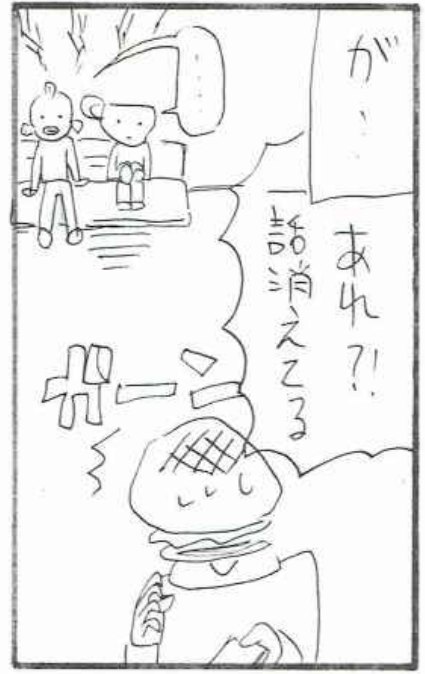 が…
あれ?!
一話消えてる
……
ガーン